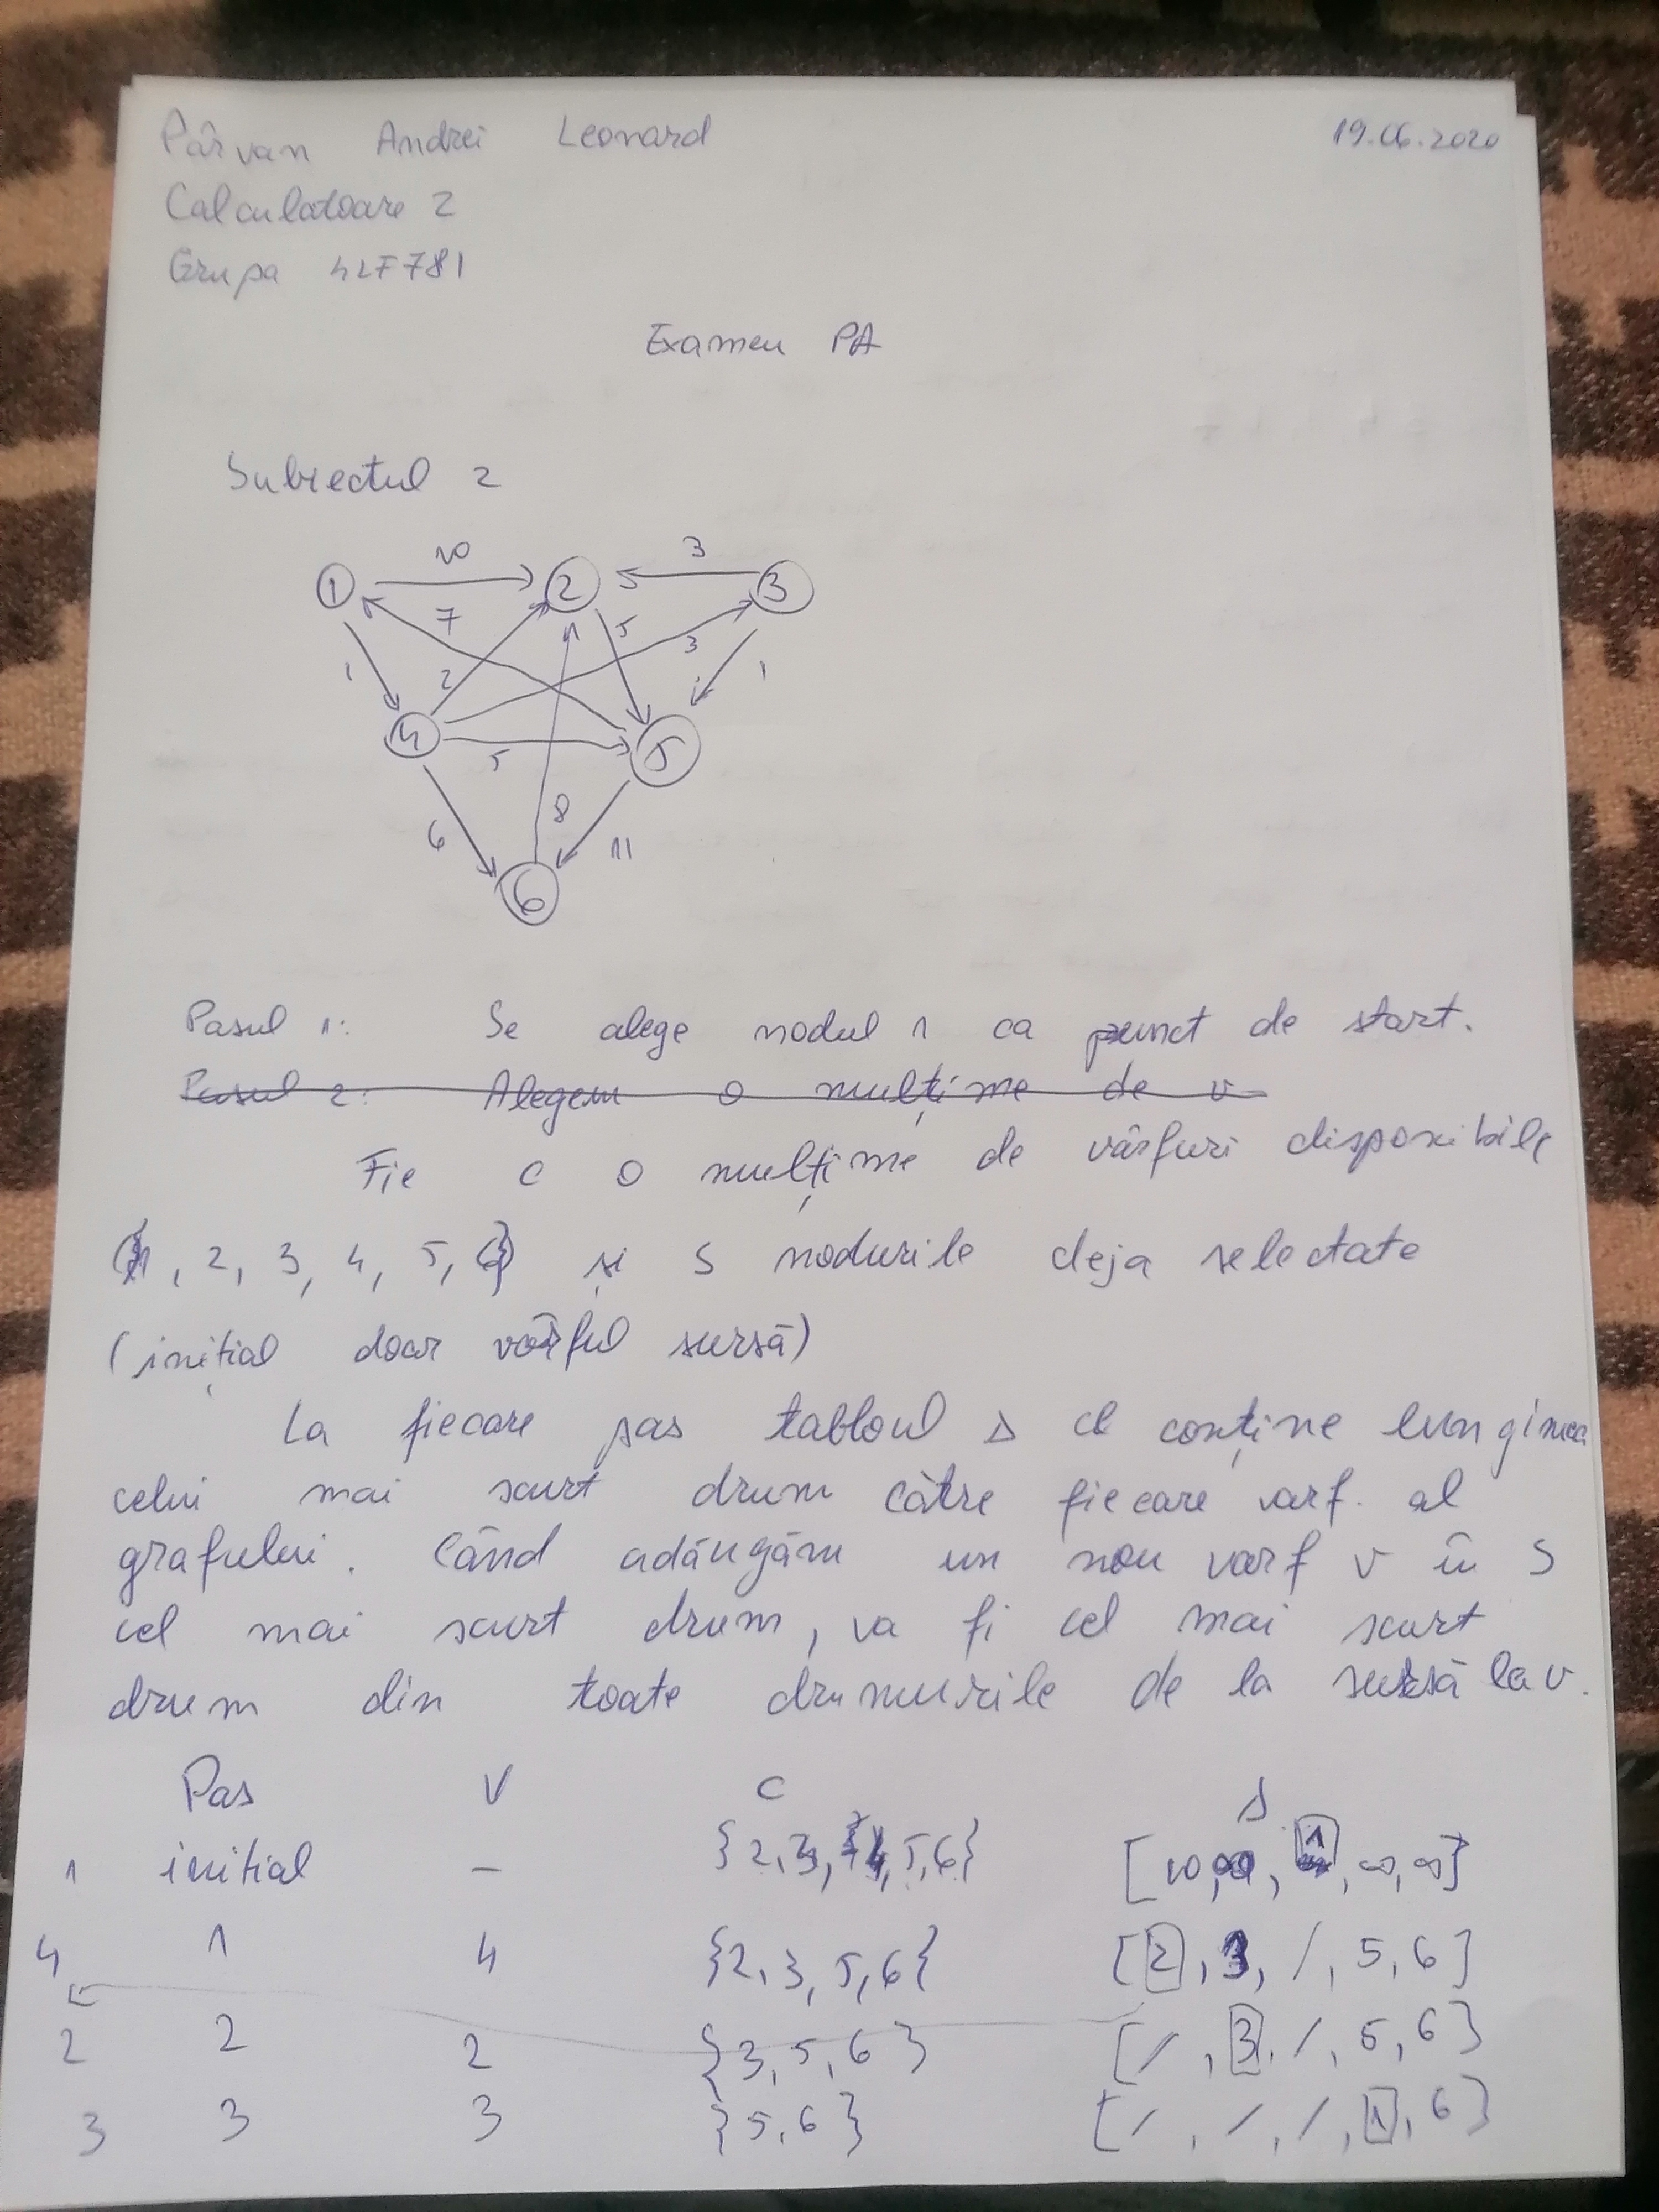 Pârvan Andrei Leonard 19.06.2020
Calculatoare 2
Grupa 4LF781
Examen PA
Subiectul 2
10 3
1 2 3
7 5 3
1 2 1
4 5 5
6 8 11
6
Pasul 1: Se alege nodul 1 ca punct de start.
Pasul 2: Alegem o mulțime de v
Fie C o mulțime de vârfuri disponibile
{1, 2, 3, 4, 5, 6} și S nodurile deja selectate
(inițial doar vârful sursă)
La fiecare pas tabloul s conține lungimea
celui mai scurt drum către fiecare varf. al
grafului. Când adăugăm un nou varf v în S
cel mai scurt drum, va fi cel mai scurt
drum din toate drumurile de la sursă la v.
Pas V C s
1 initial - {2,3,4,5,6} [10,∞,1,∞,∞]
4 1 4 {2,3,5,6} [2,3,/,5,6]
2 2 2 {3,5,6} [/,3,/,5,6]
3 3 3 {5,6} [/,/,/,1,6]